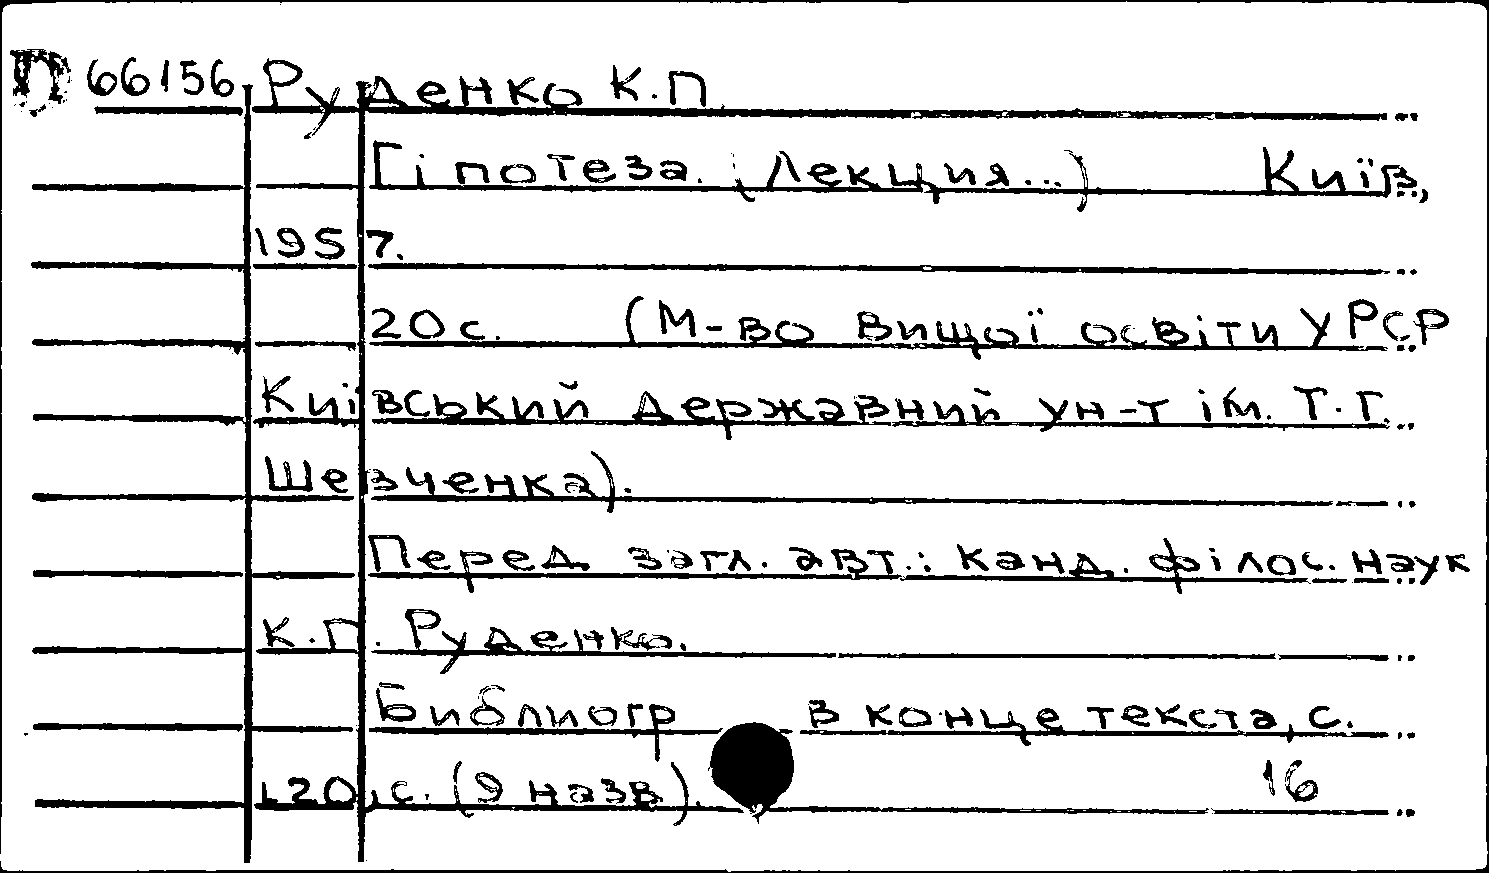 П 66156 Руденко К.П.
Гіпотеза. (Лекция...) Київ,
1957.
20 с. (М-во вищої освіти УРСР
Київський державний ун-т ім. Т.Г.
Шевченка).
Перед загл. авт.: канд. філос. наук
К.П. Руденко.
Библиогр в конце текста, с.
20, с. (9 назв).
16